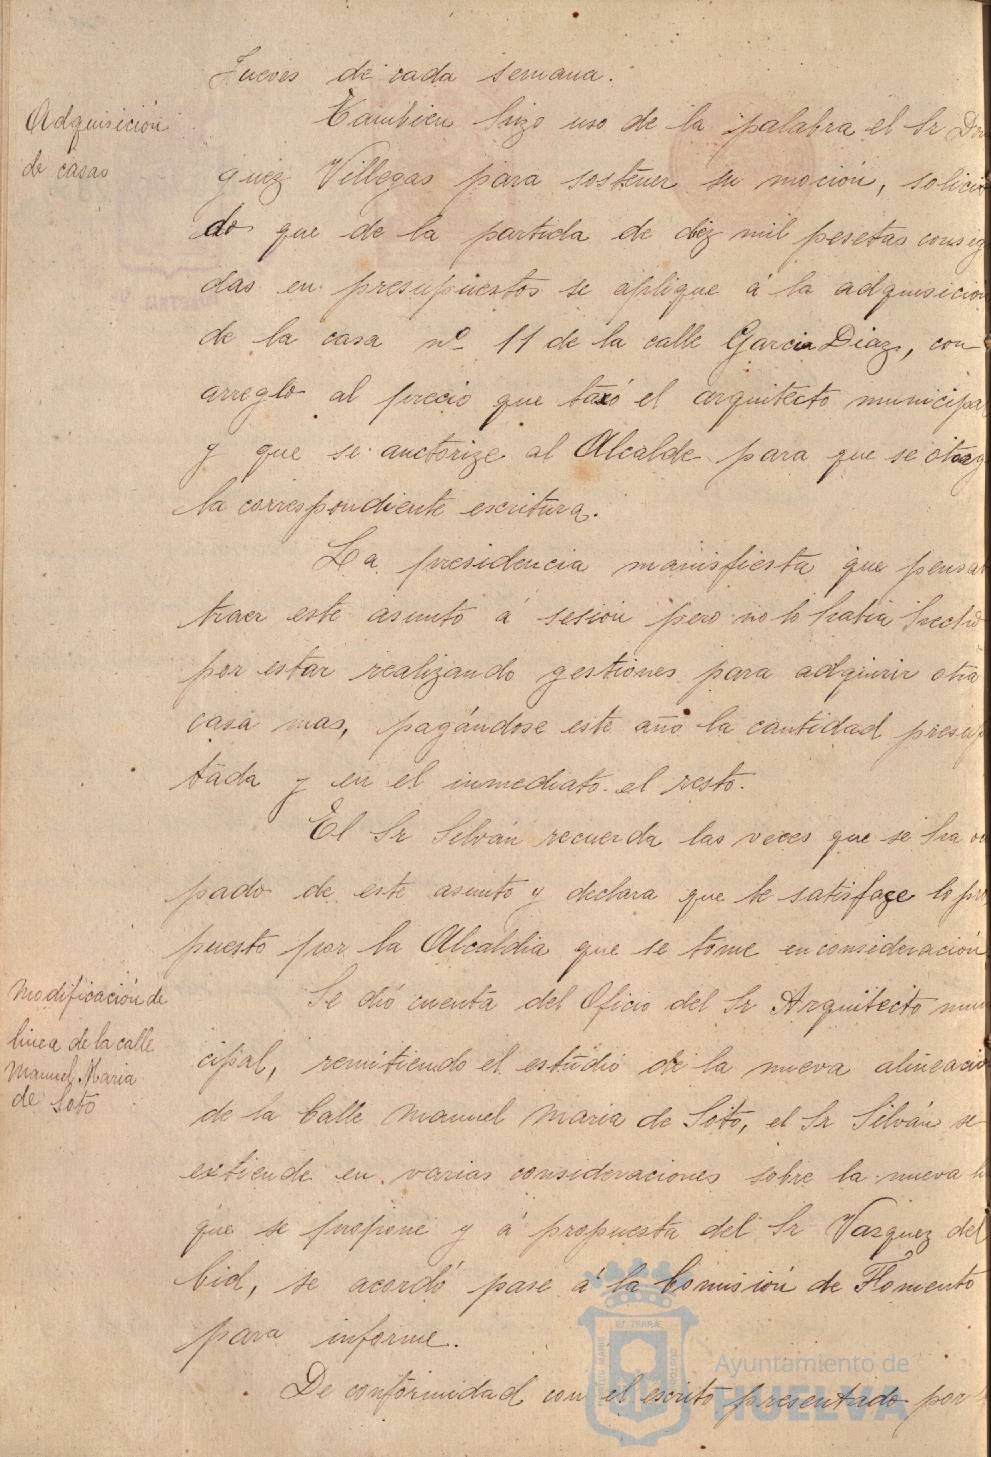 Jueves de cada semana.
Adquisición
de casas
Tambien hizo uso de la palabra el Sr Dom
guez Villegas para sostener su moción, solicitan
do que de la partida de diez mil pesetas consig
das en presupuestos se aplique á la adquisición
de la casa nº 11 de la calle Garcia Diaz, con
arreglo al precio que taxó el arquitecto municipal
y que se auctorize al Alcalde para que se otorg
la correspondiente escritura.
La presidencia manisfiesta que pensaba
traer este asunto á sesión pero no lo habia hecho
por estar realizando gestiones para adquirir otra
casa mas, pagándose este año la cantidad presup
tada y en el inmediato el resto.
El Sr Silván recuerda las veces que se ha ocu
pado de este asunto y declara que le satisface lo pro
puesto por la Alcaldia que se tome en consideración
Modificación de
linea de la calle
Manuel Maria
de Soto
Se dió cuenta del Oficio del Sr Arquitecto muni
cipal, remitiendo el estudio de la nueva alineació
de la Calle Manuel Maria de Soto, el Sr Silván se
extiende en varias consideraciones sobre la nueva li
que se propone y á propuesta del Sr Vazquez del
Cid, se acordó pase á la Comisión de Fomento
para informe.
De conformidad con el escrito presentado por
Ayuntamiento de
HUELVA